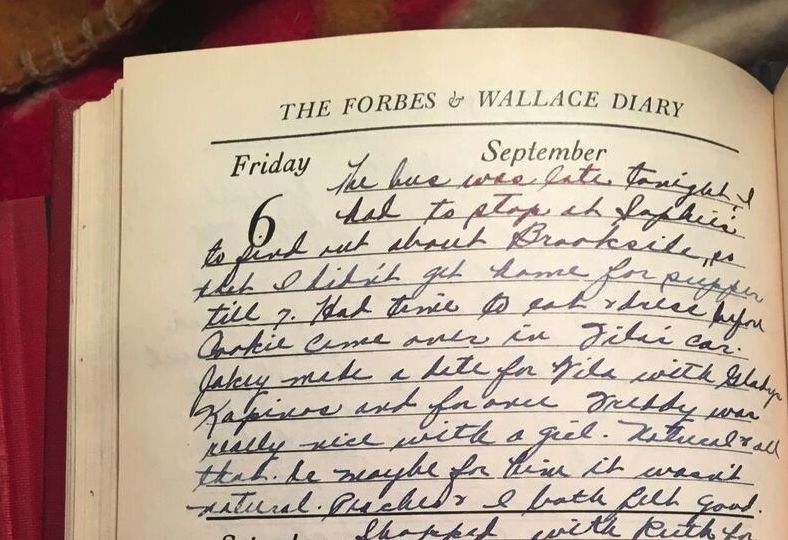 THE FORBES & WALLACE DIARY
Friday September
6
The bus was late tonight. I
had to stop at Sophie's
to find out about Brookside, so
that I didn't get home for supper
till 7. Had time to eat & dress before
Cookie came over in car.
Jakey made a date for with Gladys
Kapinos and for once Freddy was
really nice with a girl. Natural & all
that. Or maybe for him it wasn't
natural. & I both felt good.
Shopped with Ruth for